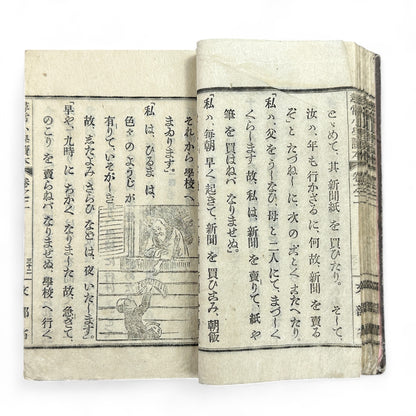 とゞめて、其新聞紙を買ひたり。そして、
汝ハ、年も行かざるに、何故新聞を賣る
ぞとたづねしに、次のごとくこたへたり
「私ハ、父をうしなひ、母と二人にて、まづしく
くらします故、私は、新聞を賣りて、紙や
筆を買はねバなりませぬ。
「私ハ、毎朝早く起きて、新聞を買ひこみ、朝飯
それから學校へ
まゐります」。
「私は、ひるまは、
色々のようじが
有りて、いそがしき
故、志たよみ、さらひなどは、夜いたします」。
「早や、九時にちかくなりました故、急ぎて、
のこりを賣らねバなりませぬ、學校へ行く
尋常小學讀本 卷之二
三十二
文部省